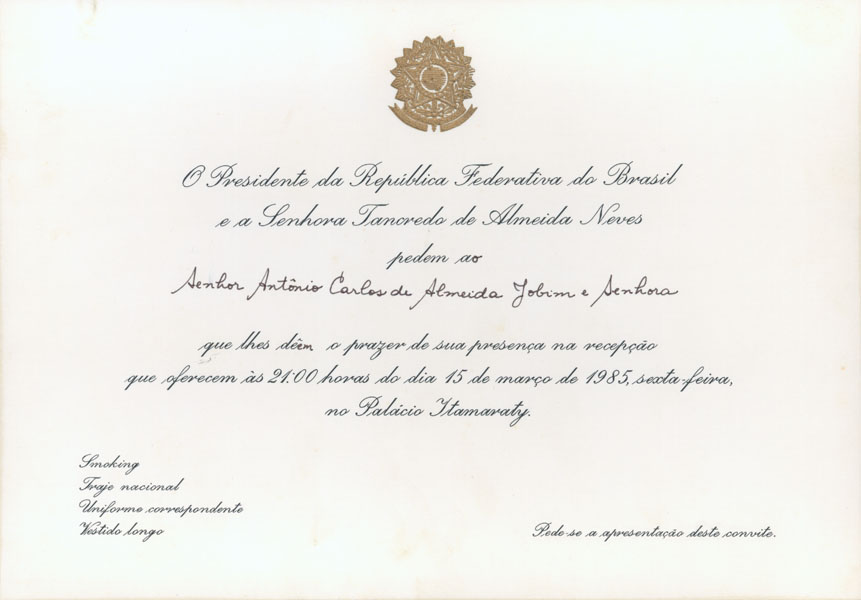 O Presidente da República Federativa do Brasil
e a Senhora Tancredo de Almeida Neves
pedem ao
Senhor Antônio Carlos de Almeida Jobim e Senhora
que lhes dêem o prazer de sua presença na recepção
que oferecem às 21:00 horas do dia 15 de março de 1985, sexta-feira,
no Palácio Itamaraty.
Smoking
Traje nacional
Uniforme correspondente
Vestido longo
Pede-se a apresentação deste convite.